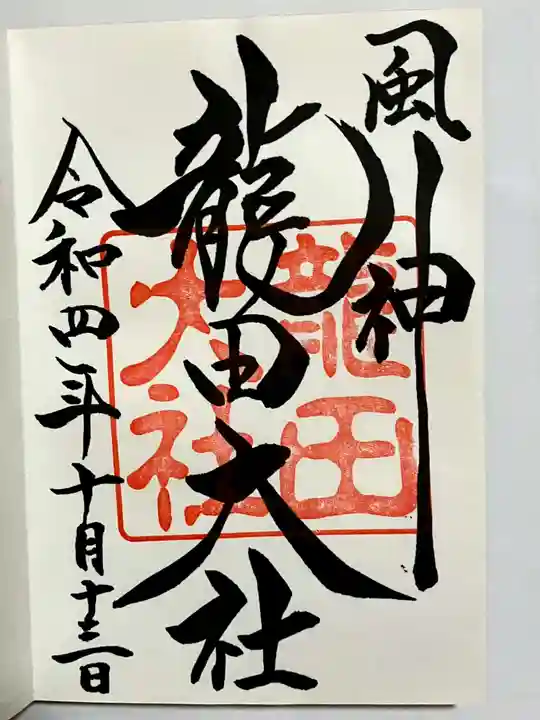 風神
龍田大社
龍田
大社
令和四年十月十三日